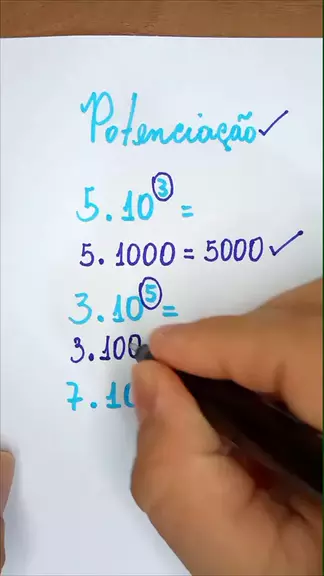 Potenciação ✓
5.10³ =
5.1000 = 5000 ✓
3.10⁵ =
3.100
7.10